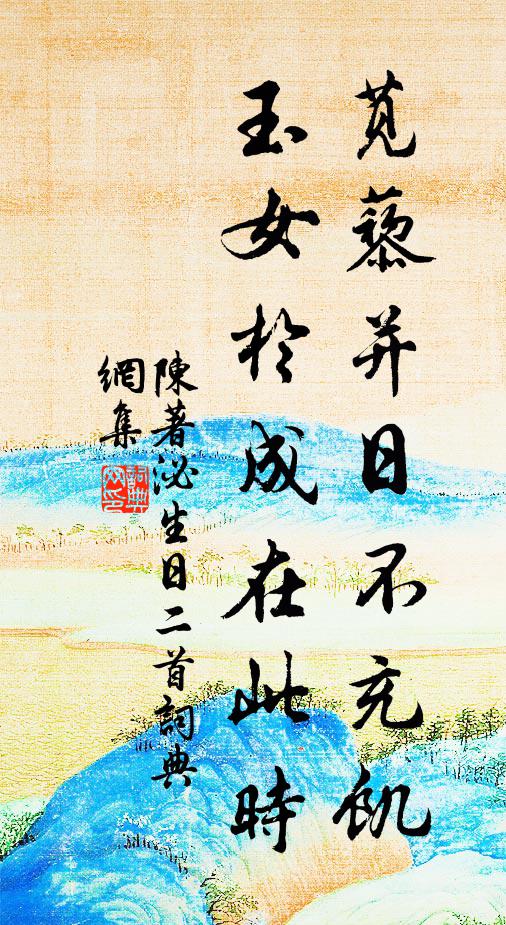 莧藜并日不充飢
玉女於成在此時
陳著泌生日二首詞典
網集